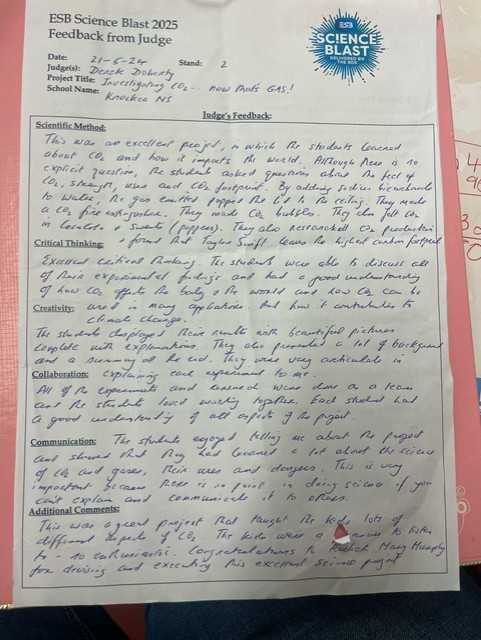 ESB Science Blast 2025
Feedback from Judge
ESB
SCIENCE
BLAST
DELIVERED BY
THE RDS
Date: 21-5-24 Stand: 2
Judge(s): Derek Doherty
Project Title: Investigating CO2 - now that's GAS!
School Name: Knockea NS
Judge's Feedback:
Scientific Method:
This was an excellent project, in which the students learned
about CO2 and how it impacts the world. Although there is no
explicit question, the students asked questions about the feel of
CO2, strength, uses and CO2 footprint. By adding sodium bicarbonate
to water, the gas emitted popped the lid to the ceiling. They made
a CO2 fire extinguisher. They made CO2 bubbles. They also felt CO2
in + sweets (poppers). They also researched CO2 production
+ found that Taylor Swift leaves the highest carbon footprint
Critical Thinking:
Excellent critical thinking. The students were able to discuss all
of their experimental findings and had a good understanding
of how CO2 affects the body + the world and how CO2 can be
used in many applications. And how it contributes to
climate change.
Creativity:
The students displayed their results with beautiful pictures
complete with explanations. They also presented a lot of background
and a summary at the end. They were very articulate in
explaining each experiment to me.
Collaboration:
All of the experiments and research were done as a team
and the students loved working together. Each student had
a good understanding of all aspects of the project.
Communication: The students enjoyed telling me about the project
and showed that they had learned a lot about the science
of CO2 and gases, their uses and dangers. This is very
important because there is no point in doing science if you
can't explain and communicate it to others.
Additional Comments:
This was a great project that taught the kids lots of
different aspects of CO2. The kids were a to listen
to - so enthusiastic. Congratulations to Mary
for devising and executing this excellent science project